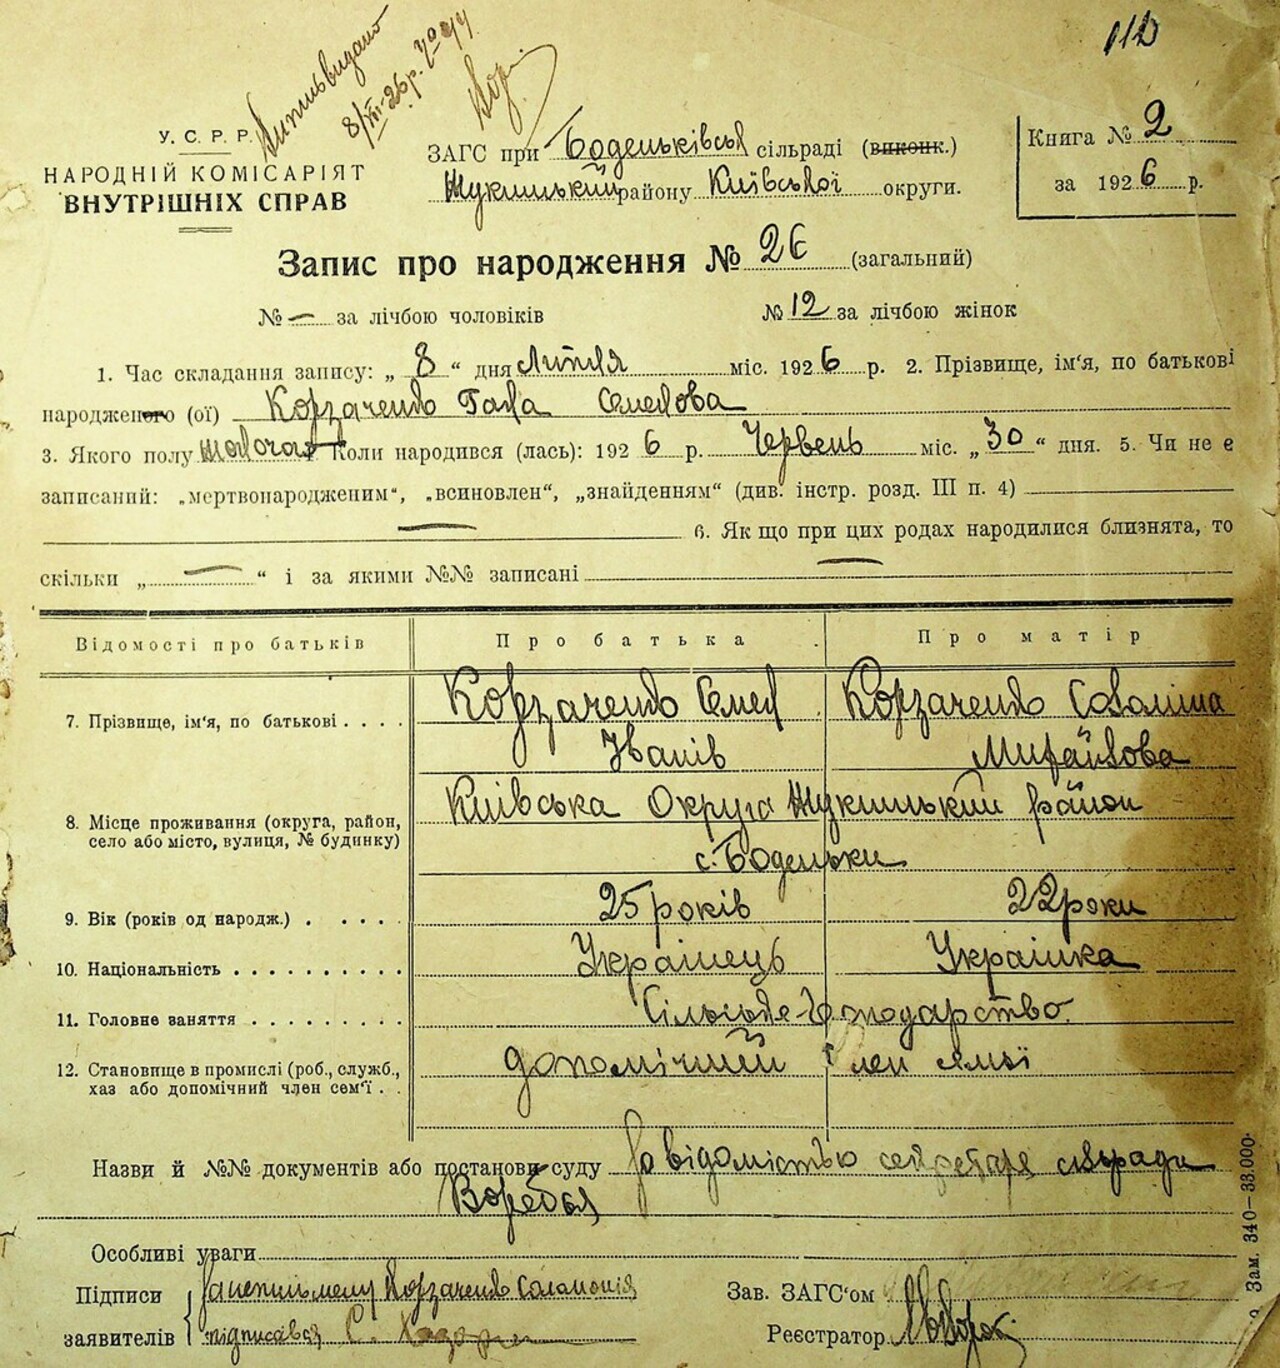 110
Витяг видано
8/VII-26 р.
У. С. Р. Р.
НАРОДНІЙ КОМІСАРІЯТ
ВНУТРІШНІХ СПРАВ
ЗАГС при Боденьківській сільраді (виконк.)
Жукинський району Київської округи.
Книга № 2
за 1926 р.
Запис про народження № 26 (загальний)
№ — за лічбою чоловіків № 12 за лічбою жінок
1. Час складання запису: „ 8 “ дня Липня міс. 1926 р. 2. Прізвище, ім‘я, по батькові
народженого (ої) Корзаченко Гала Семенова
3. Якого полу жіноча 4. Коли народився (лась): 1926 р. Червень міс. „ 30 “ дня. 5. Чи не є
записаний: „мертвонародженим“, „всиновлен“, „знайденням“ (див. інстр. розд. III п. 4)
— 6. Як що при цих родах народилися близнята, то
скільки „ — “ і за якими №№ записані —
Відомості про батьків Про батька Про матір
7. Прізвище, ім‘я, по батькові . . . . Корзаченко Семен Корзаченко Соломія
Іванів Михайлова
8. Місце проживання (округа, район, село або місто, вулиця, № будинку) Київська Округа Жукинський район
с. Боденьки
9. Вік (років од народж.) . . . . . 25 років 22 роки
10. Національність . . . . . . . . . . Українець Українка
11. Головне заняття . . . . . . . . . Сільське-Господарство.
12. Становище в промислі (роб., служб., хаз або допомічний член сем‘ї . . допомічний член сямьї
Назви й №№ документів або постанови суду За відомістью секретаря сільради
Воребья
Особливі уваги
Підписи Корзаченко Соломонія Зав. ЗАГС‘ом
заявителів підписався С. Реєстратор
Зам. 340—33.000.